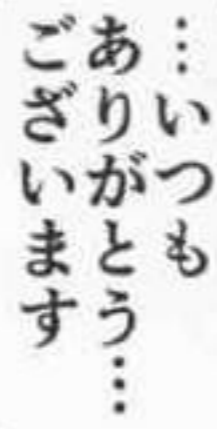 …いつも
ありがとう…
ございます